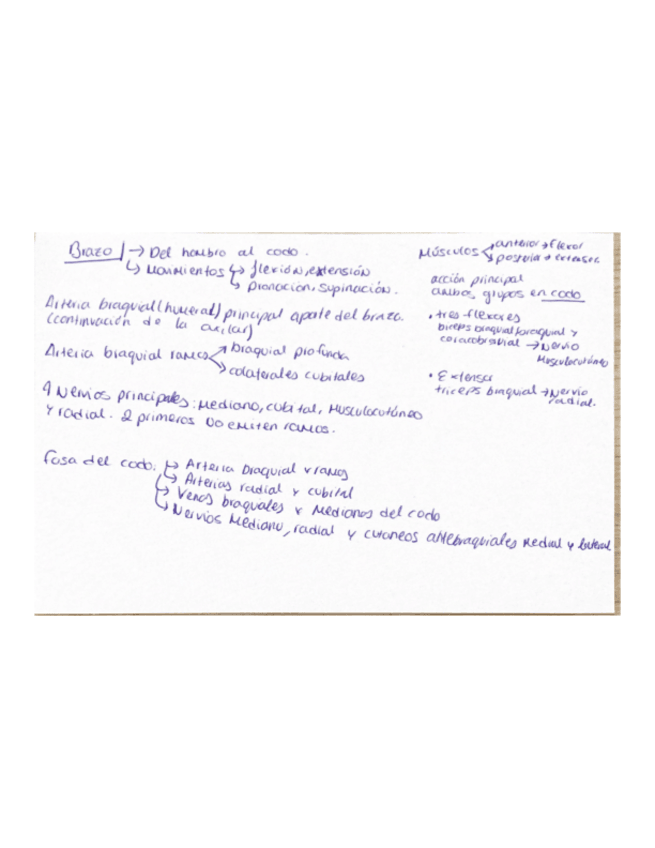 Brazo → Del hombro al codo.
↳ Movimientos ↦ flexión, extensión
↳ Pronación, supinación.
Arteria braquial (humeral) principal aporte del brazo.
(continuación de la axilar)
Arteria braquial ramos → braquial profunda
→ colaterales cubitales
4 Nervios principales: Mediano, cubital, Musculocutáneo
y radial. 2 primeros no emiten ramos.
Fosa del codo: ↦ Arteria braquial y ramos
↳ Arterias radial y cubital
↳ Venas braquiales y Medianas del codo
↳ Nervios Mediano, radial y cutaneos antebraquiales Medial y lateral
Músculos anterior → flexor
posterior → extensor
acción principal
ambos grupos en codo
• tres flexores
biceps braquial/braquial y
coracobraquial → Nervio
Musculocutáneo
• Extensor
triceps braquial → Nervio
radial.